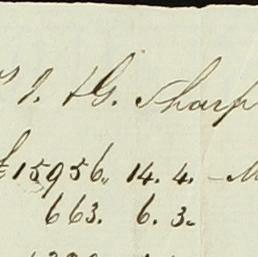 J. & G. Sharp
£15956. 14. 4. – M
663. 6. 3.